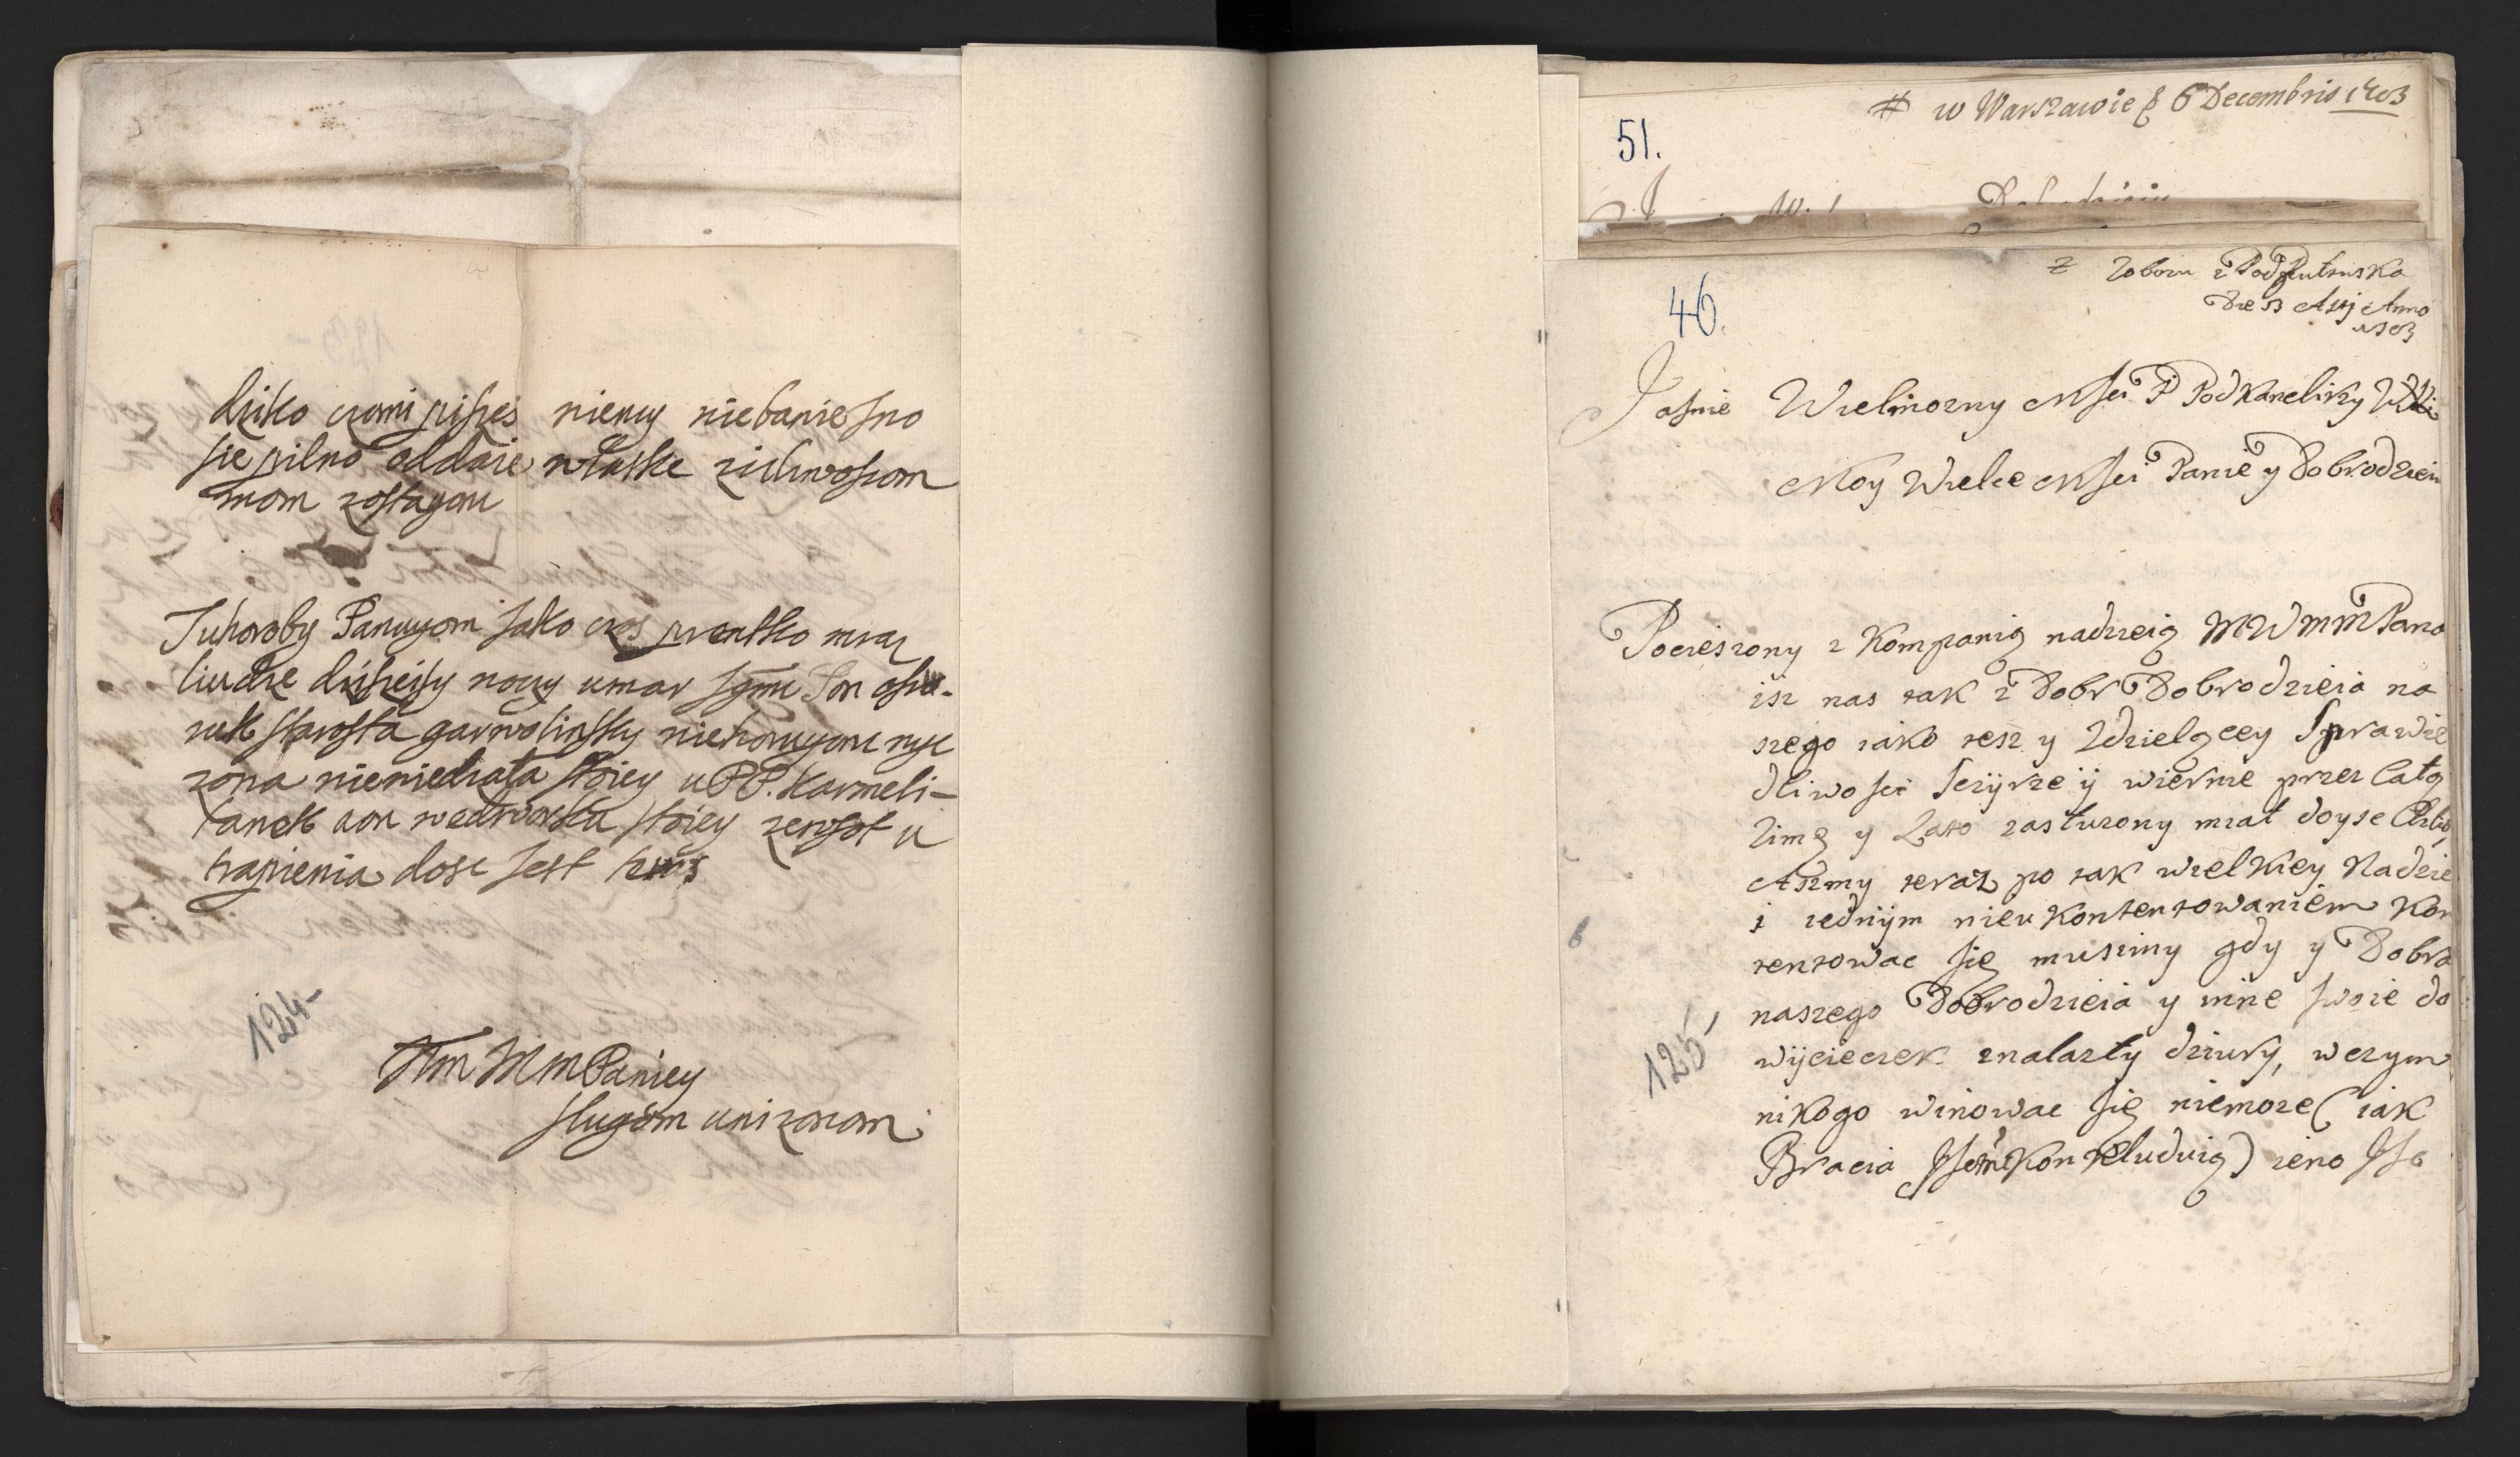 niemy niebanie sno
sie pilno oddaie właske zicliwosom
mom zostayou
Juhoroby Panuyom jako czos prentko mrą
liudze dzisieisy nocy umar
rek starosta garwolinsky niehoruyonc nyc
zona niemiedzala stoiey u P.P. Karmeli-
tanek aon wedworku stoiey
trapienia dosc jest
124-
Wm M m Paniey
slugom unizonom
w Warszawie 6 Decembris 1703
51.
z Pod Pultuska
Anno
1703
46.
Jasnie Wielmozny MSci P Podkanclirzy
Moy Wielce MSci Panie y Dobrodzieiu
Pocieszony z Kompanią nadzeią MWMM Pana
isz nas tak z Dobr Dobrodzieia na
szego iako tesz y Zdzielącey Sprawie
dliwosci Sczyrze y wiernie przez Całą
Zimę y Lato zasłuzony miał doyse
Aszmy teraz po tak wielkiey Nadzie
i iednym nieukontentowaniem Kon
tentowac się musimy gdy y Dobra
naszego Dobrodzieia y inne swoie do
wycieczek znalazły dziury, wczym
125-
nikogo winowac się niemoze (iak
Bracia Konkludują) ieno